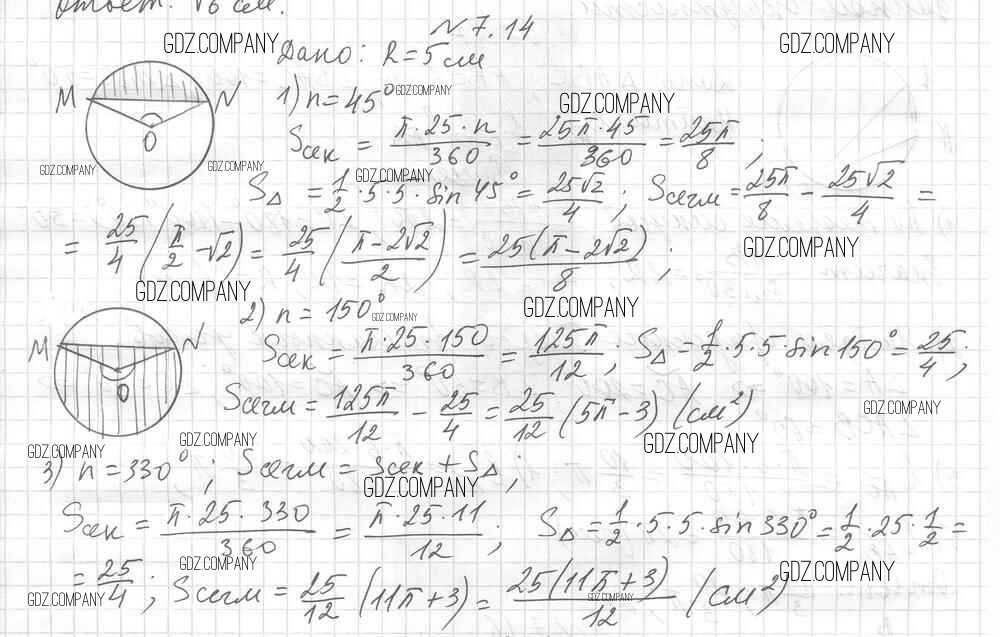 Ответ: √6 см.
N 7.14
GDZ.COMPANY GDZ.COMPANY
Дано: R = 5 см
M N O
1) n = 45° GDZ.COMPANY GDZ.COMPANY
Sсек = π·25·n/360 = 25π·45/360 = 25π/8 ;
GDZ.COMPANY GDZ.COMPANY GDZ.COMPANY
S△ = 1/2 · 5 · 5 · sin 45° = 25√2/4 ; Sсегм = 25π/8 − 25√2/4 =
= 25/4 (π/2 − √2) = 25/4 ((π − 2√2)/2) = 25(π − 2√2)/8 ;
GDZ.COMPANY
GDZ.COMPANY GDZ.COMPANY
2) n = 150° GDZ.COMPANY
M N O
Sсек = π·25·150/360 = 125π/12 ; S△ = 1/2 · 5 · 5 · sin 150° = 25/4 ;
Sсегм = 125π/12 − 25/4 = 25/12 (5π − 3) (см²)
GDZ.COMPANY
GDZ.COMPANY GDZ.COMPANY GDZ.COMPANY
3) n = 330° ; Sсегм = Sсек + S△ ;
GDZ.COMPANY
Sсек = π·25·330/360 = π·25·11/12 ; S△ = 1/2 · 5 · 5 · sin 330° = 1/2 · 25 · 1/2 =
GDZ.COMPANY GDZ.COMPANY
= 25/4 ; Sсегм = 25/12 (11π + 3) = 25(11π + 3)/12 (см²)
GDZ.COMPANY GDZ.COMPANY